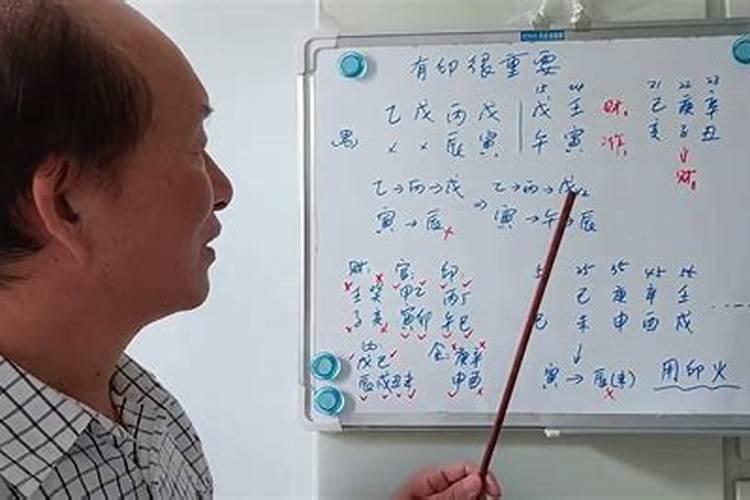 有印很重要
15 24 21 22 23
乙 戊 丙 戊 戊 壬 财 己 庚 辛
男 × × 辰 寅 午 寅 亥 子 丑
↓
财
乙→丙→戊 乙→丙→戊
寅→辰× ⇒ 寅→午→辰
财: 官: 印: 5 25 35 45 55
壬癸 甲乙 丙丁 己 庚 辛 壬
子亥 寅卯 午巳 巳 未 申 酉 戌
戊己 金: 庚辛 ↓
辰戌丑未 申酉 寅→辰(未) 用印火
×